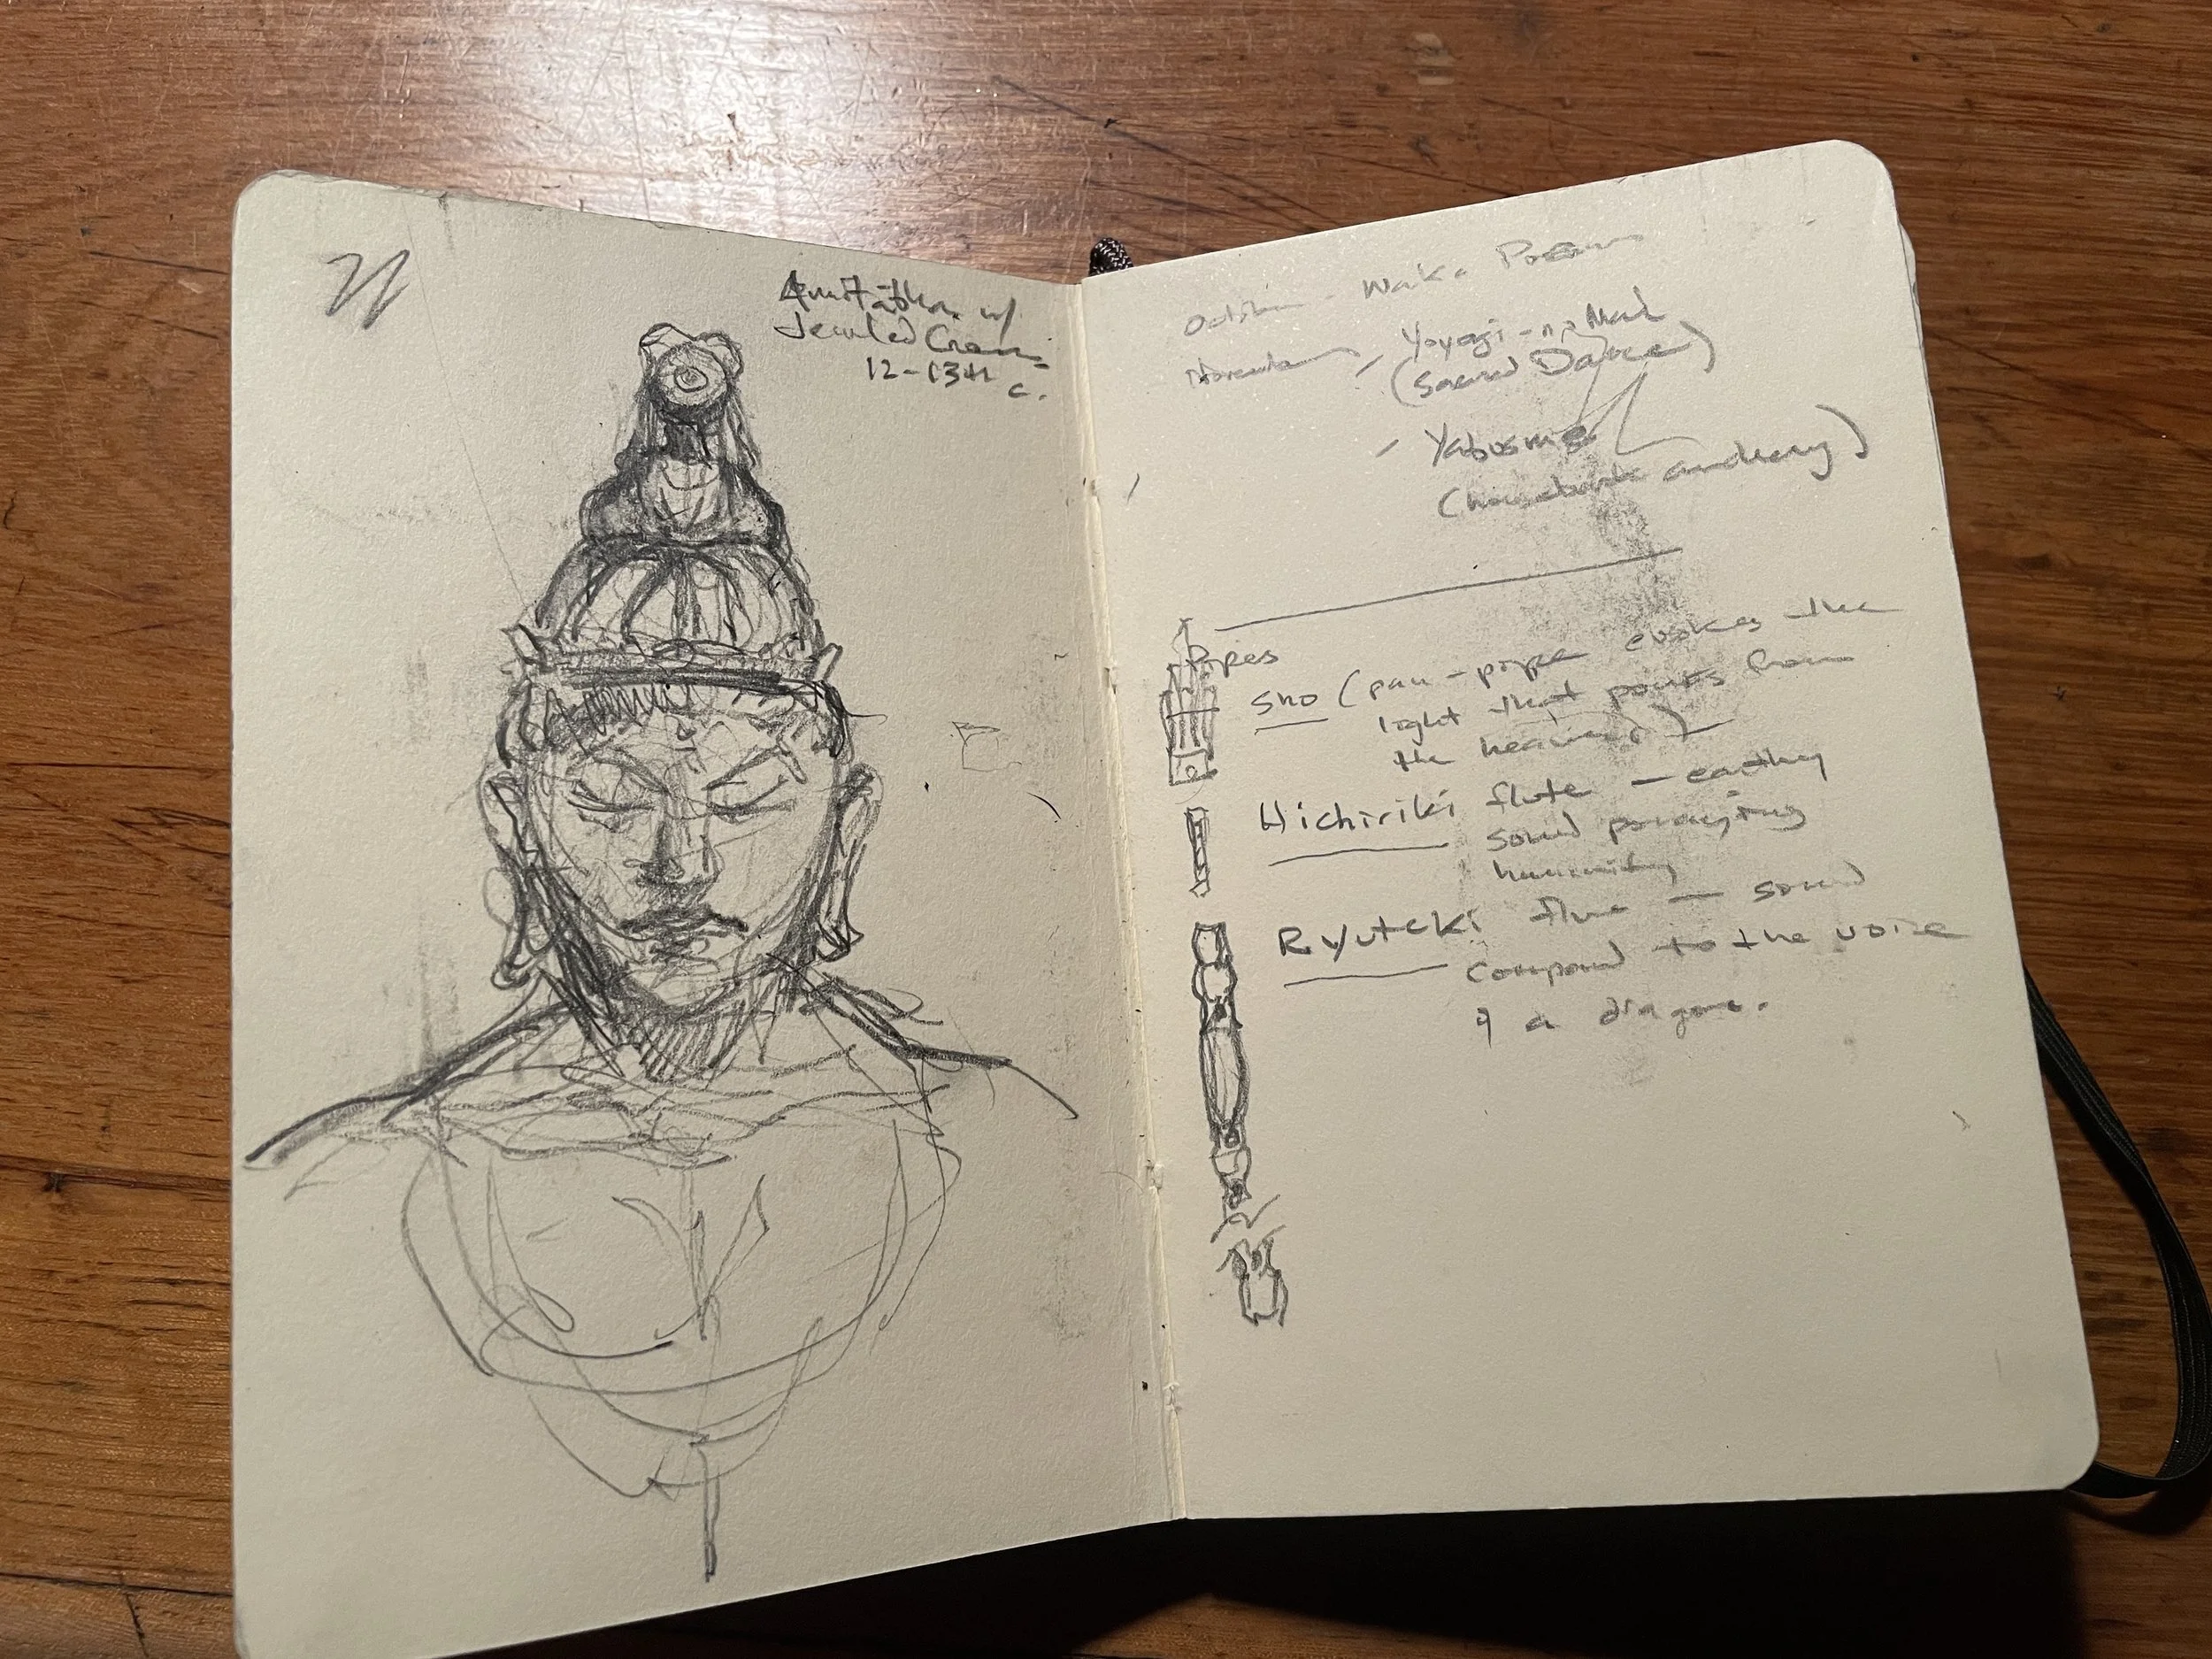 Amitabha w/
Jeweled Crown
12-13th
c.
Waka Poem
Yoyogi-no Mai
(Sacred Dance)
- Yabusme
(horseback archery)
Pipes
Sho (pan-pipe evokes the
light that pours from
the heavens)
Hichiriki flute — earthy
sound portraying
humanity
Ryuteki flute — sound
compared to the voice
of a dragon.